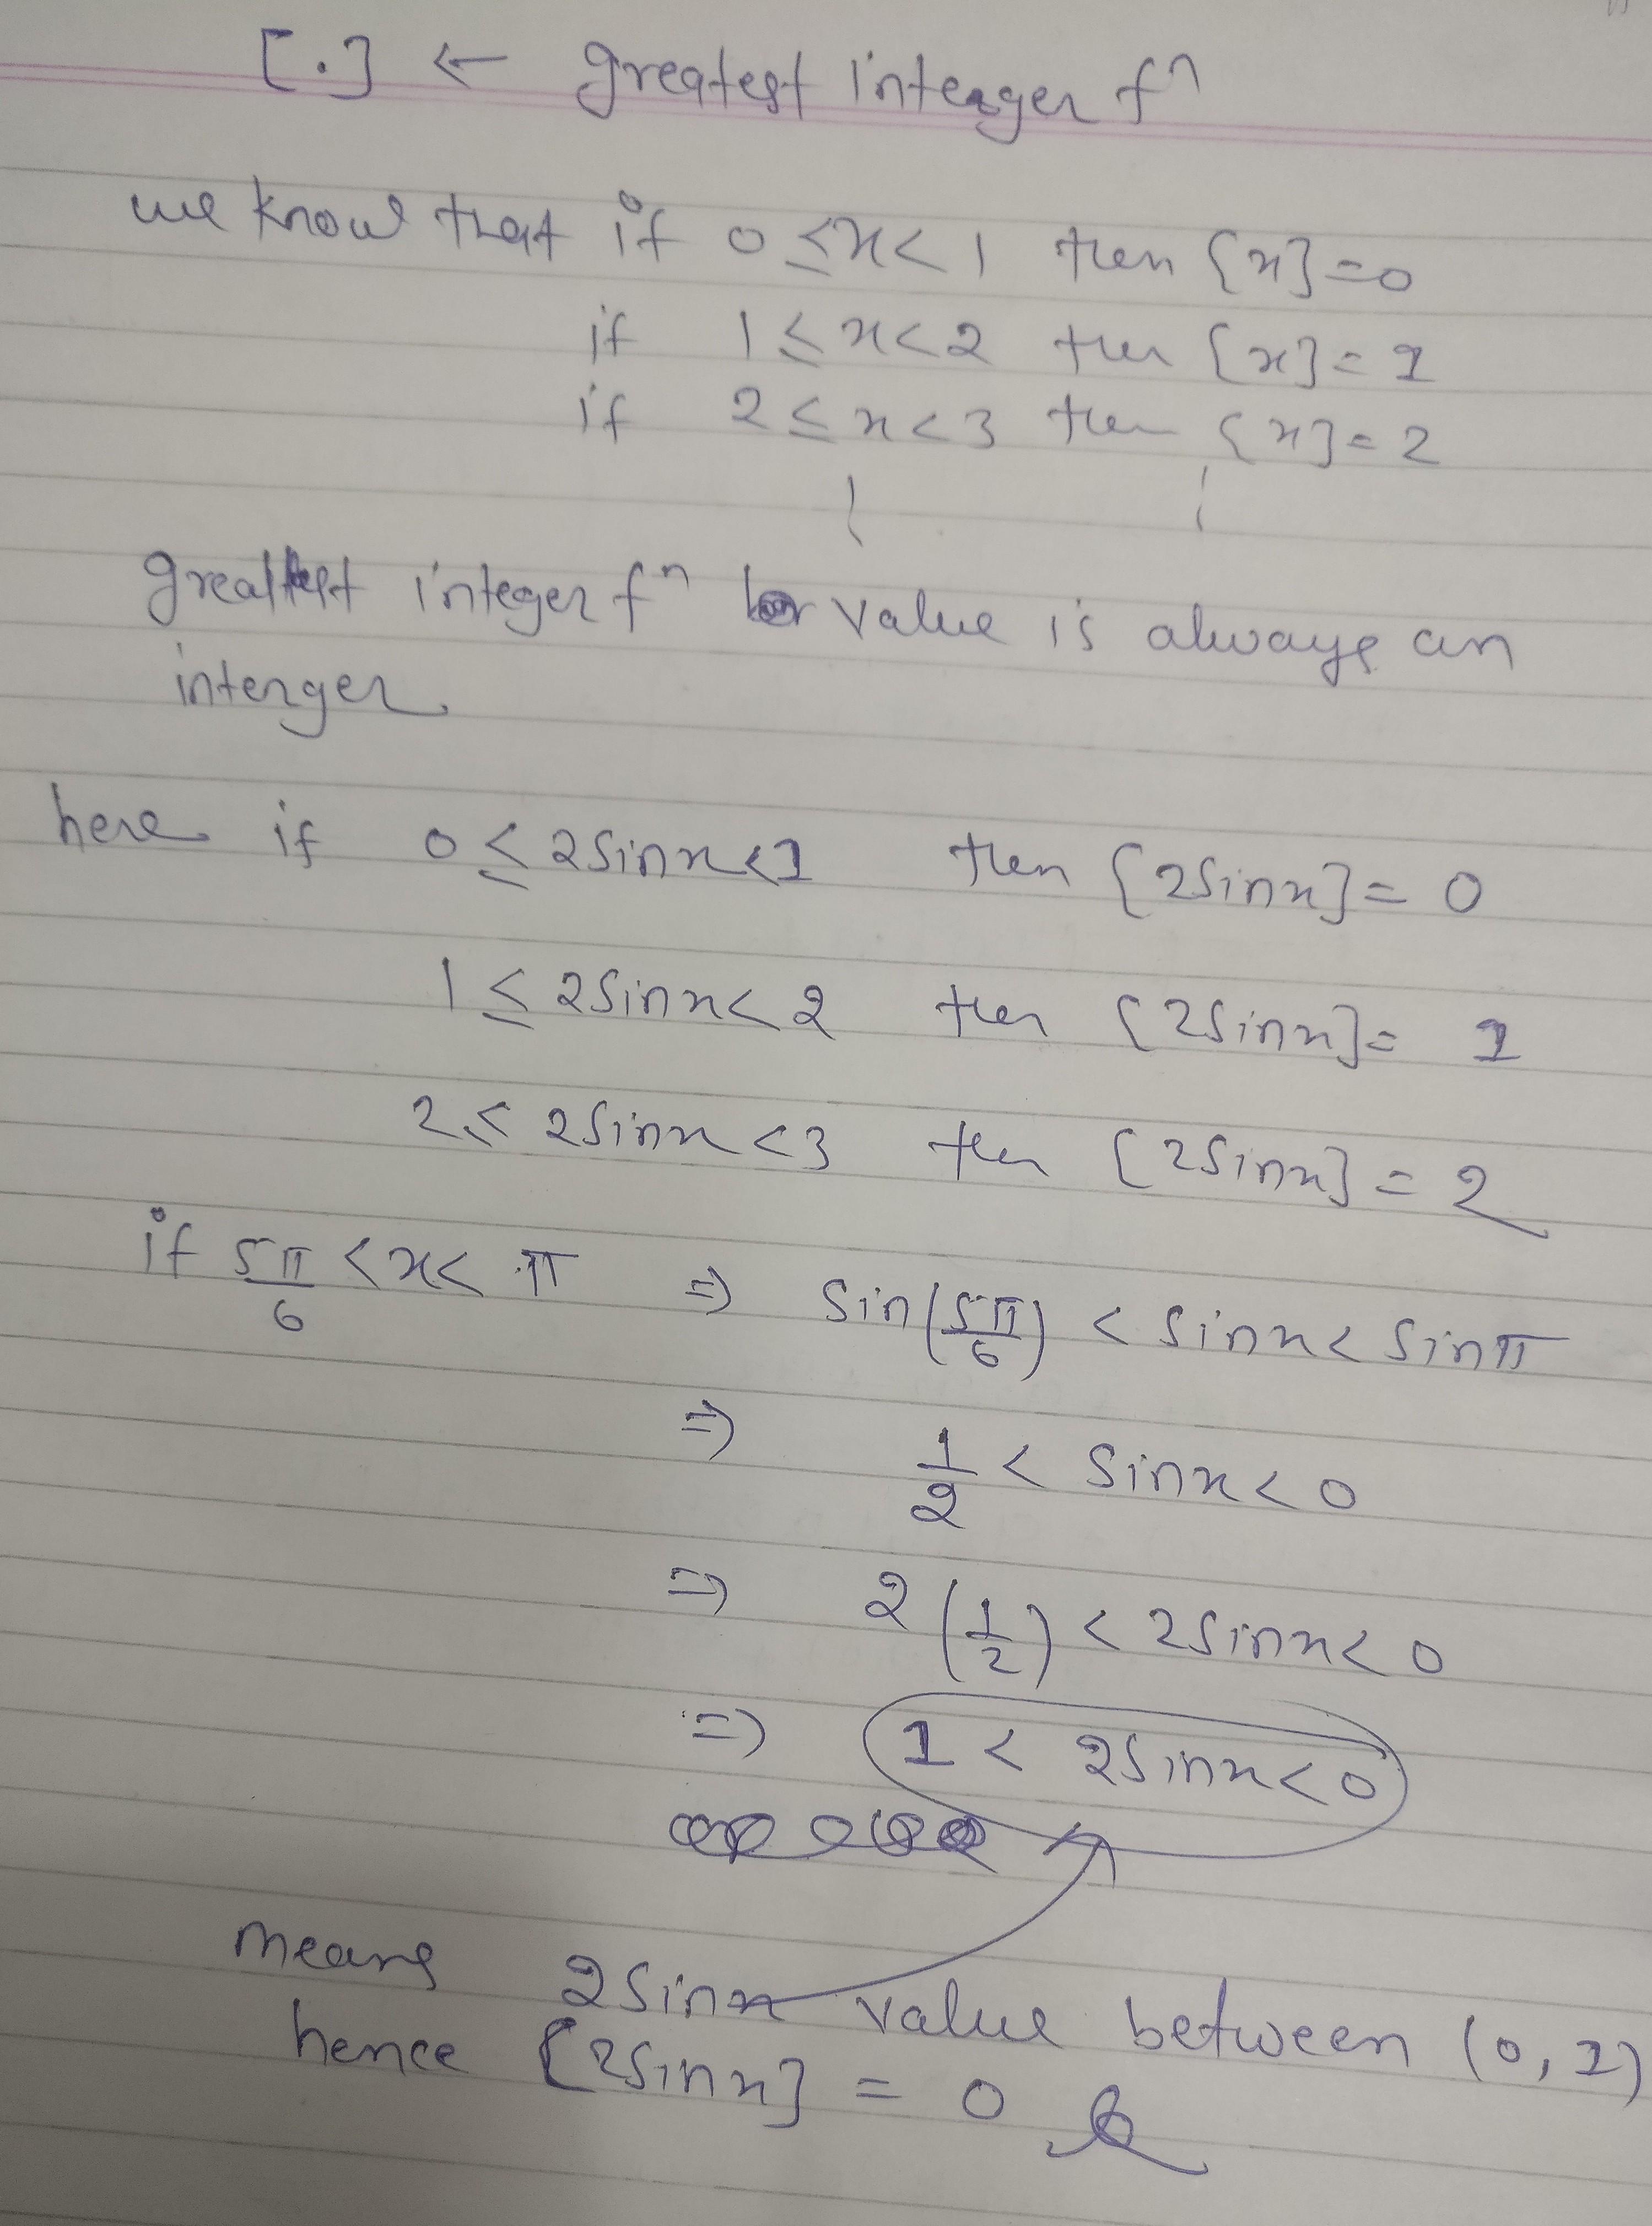 [.] ← greatest integer fⁿ
we know that if 0 ≤ x < 1 then [x] = 0
if 1 ≤ x < 2 then [x] = 1
if 2 ≤ x < 3 then [x] = 2
greatest integer fⁿ value is always an
interger
here if 0 ≤ 2sinx < 1 then [2sinx] = 0
1 ≤ 2sinx < 2 then [2sinx] = 1
2 ≤ 2sinx < 3 then [2sinx] = 2
if 5π/6 < x < π ⇒ sin(5π/6) < sinx < sinπ
⇒ 1/2 < sinx < 0
⇒ 2(1/2) < 2sinx < 0
⇒ 1 < 2sinx < 0
means 2sinx value between (0, 1)
hence [2sinx] = 0